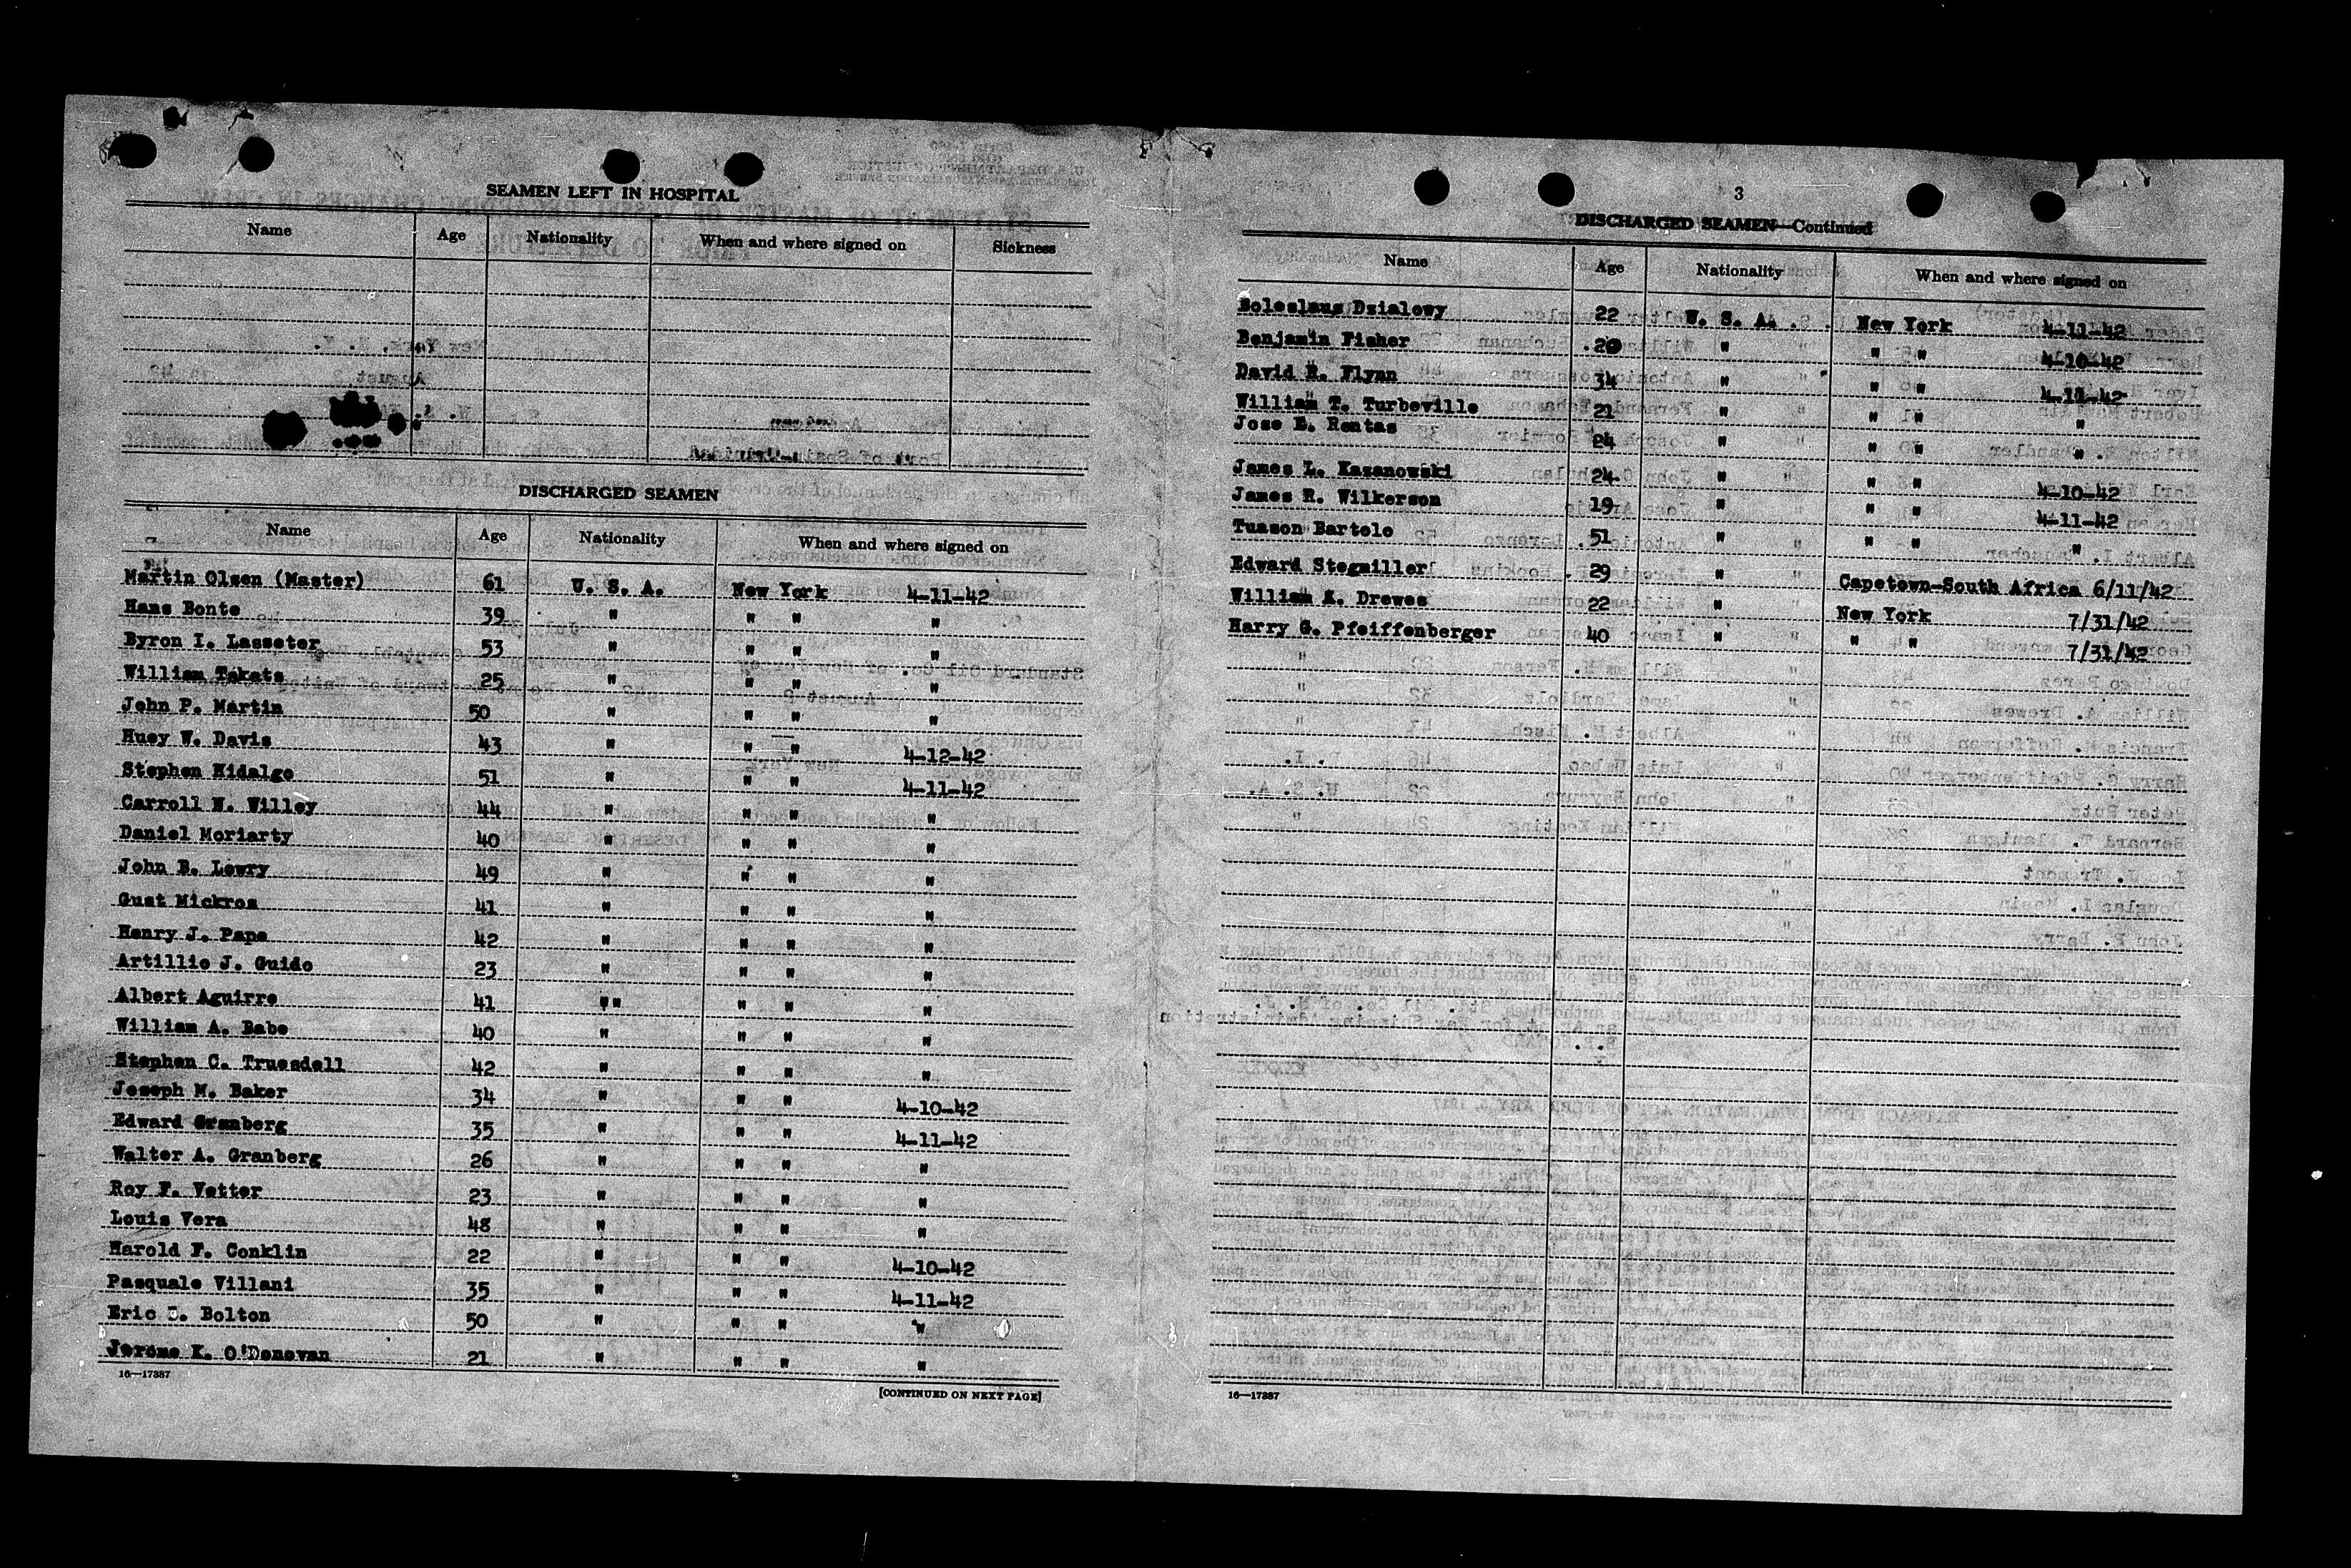 SEAMEN LEFT IN HOSPITAL
Name Age Nationality When and where signed on Sickness
DISCHARGED SEAMEN
Name Age Nationality When and where signed on
Martin Olsen (Master) 61 U. S. A. New York 4-11-42
Hans Bonte 39 " " " "
Byron I. Lasseter 53 " " " "
William Takats 25 " " " "
John P. Martin 50 " " " "
Huey W. Davis 43 " " " 4-12-42
Stephen Hidalgo 51 " " " 4-11-42
Carroll N. Willey 44 " " " "
Daniel Moriarty 40 " " " "
John B. Lowry 49 " " " "
Gust Mickros 41 " " " "
Henry J. Pape 42 " " " "
Artillio J. Guido 23 " " " "
Albert Aguirre 41 "" " " "
William A. Babe 40 " " " "
Stephen C. Truesdell 42 " " " "
Joseph M. Baker 34 " " " 4-10-42
Edward Granberg 35 " " " 4-11-42
Walter A. Granberg 26 " " " "
Roy F. Vetter 23 " " " "
Louis Vera 48 " " " "
Harold F. Conklin 22 " " " 4-10-42
Pasquale Villani 35 " " " 4-11-42
Eric Bolton 50 " " " "
Jerome K. O'Donovan 21 " " " "
16—17387
[CONTINUED ON NEXT PAGE]
3
DISCHARGED SEAMEN—Continued
Name Age Nationality When and where signed on
Boleslaus Dzialowy 22 U. S. A. New York 4-11-42
Benjamin Fisher 26 " " " 4-10-42
David R. Flynn 34 " " " 4-11-42
William T. Turbeville 21 " " " "
Jose E. Rentas 24 " " " "
James L. Kazanowski 24 " " " 4-10-42
James R. Wilkerson 19 " " " 4-11-42
Tuason Bartolo 51 " " " "
Edward Stegmiller 29 " Capetown-South Africa 6/11/42
William A. Drewes 22 " New York 7/31/42
Harry G. Pfeiffenberger 40 " " " 7/31/42
16—17387